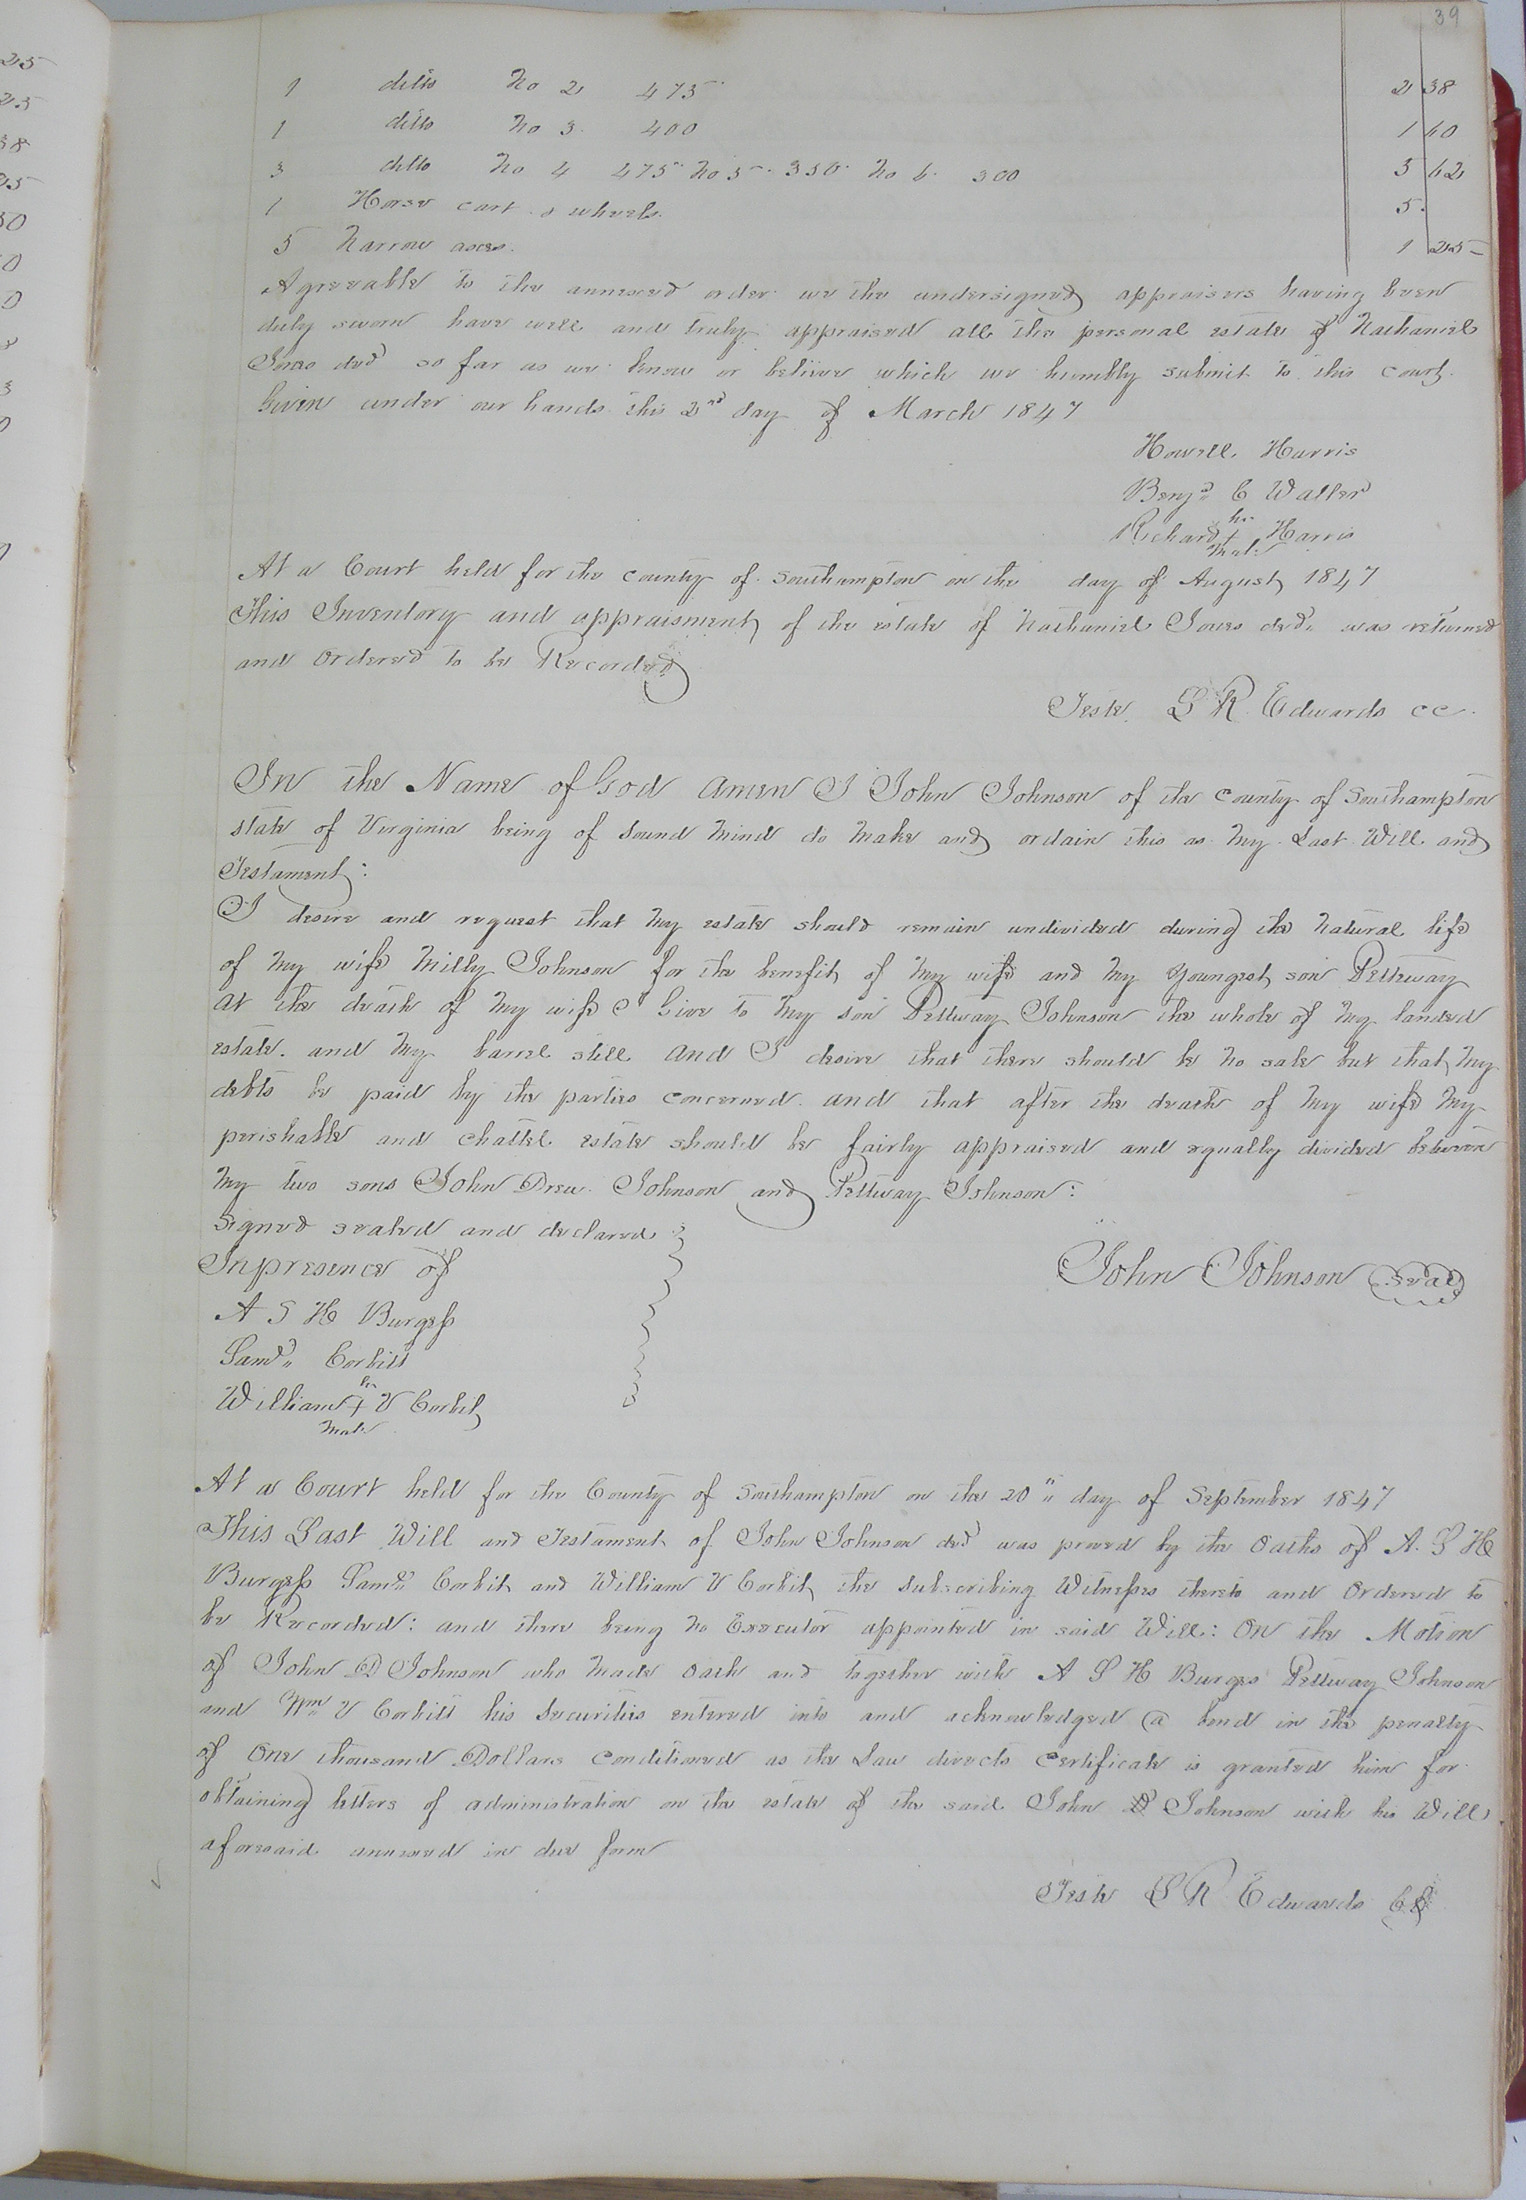 39
25
25
38
25
50
0
0
3
0
1 ditto No 2 475 2 38
1 ditto No 3. 400 1 60
3 ditto No 4 475 No 5 350 No 6 300 5 62
1 Horse cart & wheels 5.
5 Narrow axes. 1 25
Agreeable to the annexed order we the undersigned appraisers having been
duly sworn have well and truly appraised all the personal estate of Nathaniel
Jones decd so far as we know or believe which we humbly submit to this court.
Given under our hands this 2nd day of March 1847
Howell Harris
Benjn C Waller
his
Richard + Harris
mark
At a Court held for the county of Southampton on the day of August 1847
This Inventory and appraisment of the estate of Nathaniel Jones decd. was returned
and Ordered to be Recorded
Teste. L R Edwards cc.
In the Name of God Amen I John Johnson of the county of Southampton
state of Virginia being of Sound Mind do Make and ordain this as My Last Will and
Testament:
I desire and request that My estate should remain undivided during the Natural life
of My wife Milly Johnson for the benefit of My wife and My Youngest son Pettway
At the death of My wife I Give to My son Pettway Johnson the whole of My landed
estate. and My barrel still And I desire that there should be No sale but that My
debts be paid by the parties concerned. and that after the death of My wife My
perishable and Chattel estate should be fairly appraised and equally divided between
My two sons John Drew Johnson and Pettway Johnson:
Signed sealed and declared
In presence of
John Johnson Seal
A S H Burgess
Saml. Corbitt
his
William + V Corbit
mark
At a Court held for the County of Southampton on the 20" day of September 1847
This Last Will and Testament of John Johnson decd was proved by the Oaths of A. S H
Burgess Saml. Corbit and William V Corbit the Subscribing Witnesses thereto and Ordered to
be Recorded: and there being No Executor appointed in said Will: On the Motion
of John D Johnson who Made Oath and together with A S H Burges Pettway Johnson
and Wm V Corbitt his Securities entered into and acknowledged a bond in the penalty
of One thousand Dollars Conditioned as the Law directs Certificate is granted him for
obtaining letters of administration on the estate of the said John D Johnson with his Will
aforesaid annexed in due form
Teste L R Edwards CC